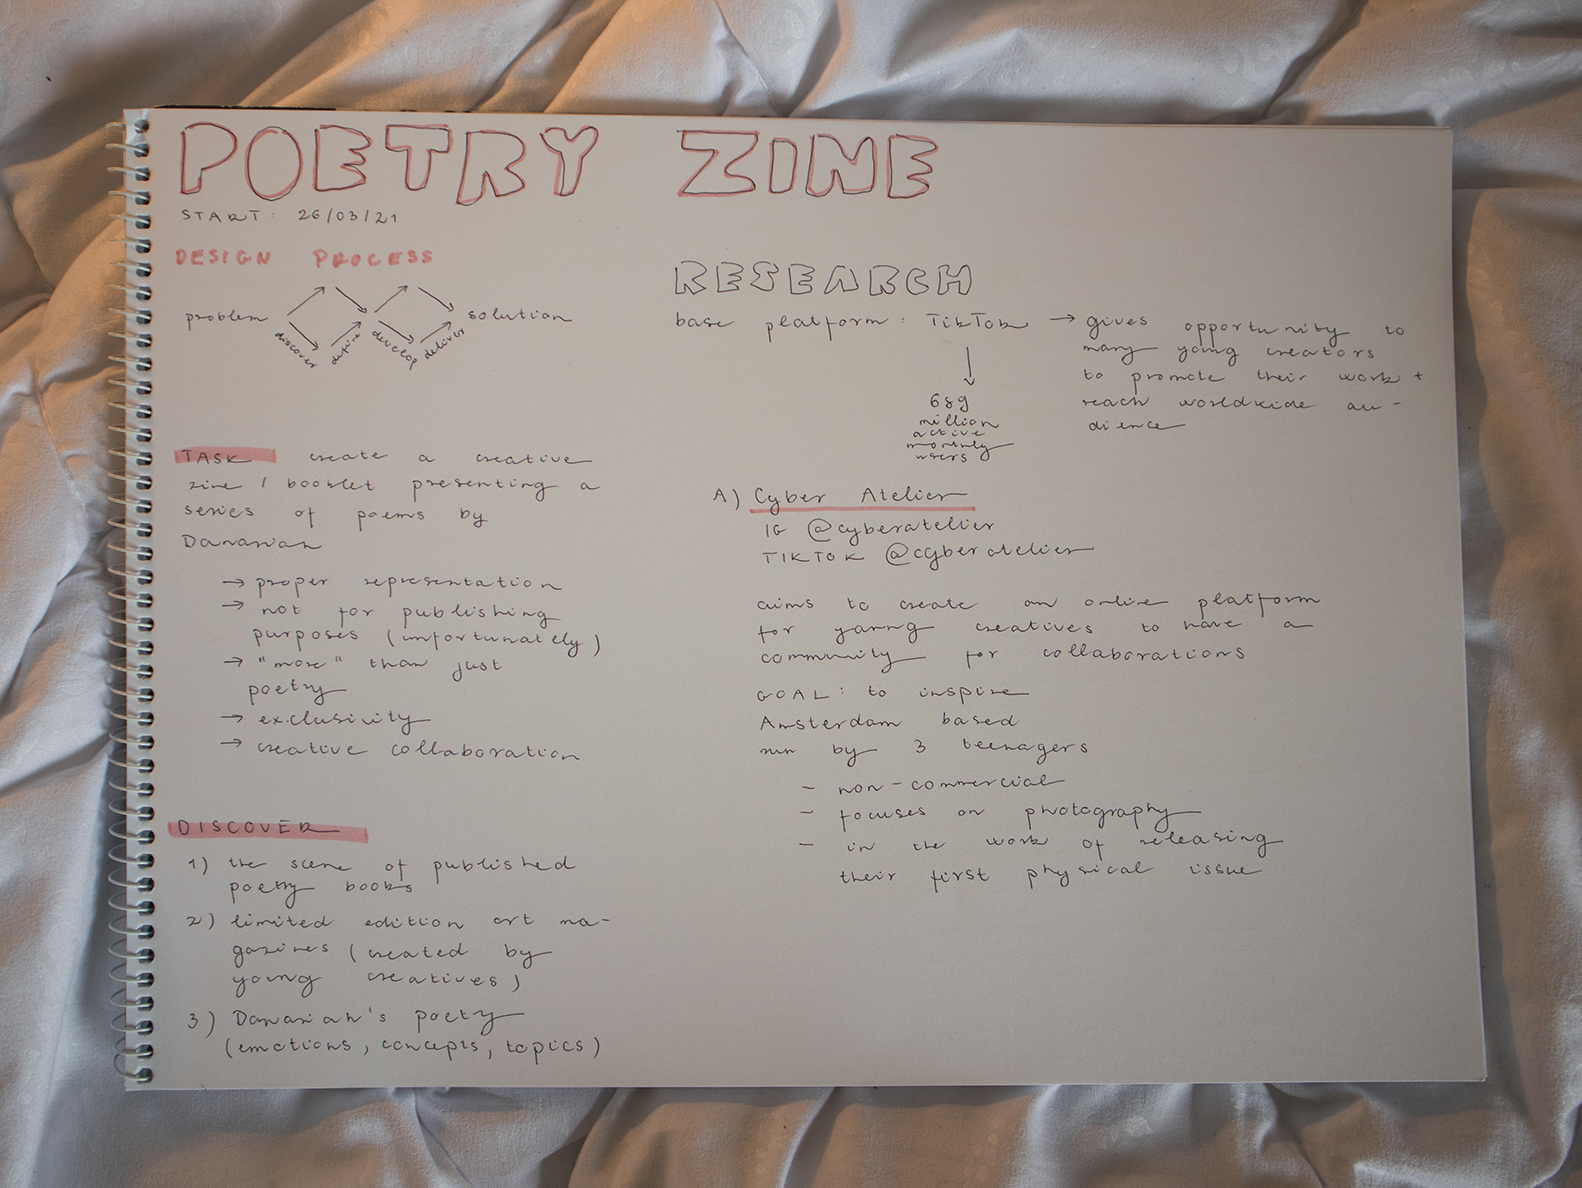 POETRY ZINE
START: 26/03/21
DESIGN PROCESS
problem
discover
define
develop
deliver
solution
TASK create a creative
zine / booklet presenting a
series of poems by
Dananiah
→ proper representation
→ not for publishing
purposes (unfortunately)
→ "more" than just
poetry
→ exclusivity
→ creative collaboration
DISCOVER
1) the scene of published
poetry books
2) limited edition art ma-
gazines (created by
young creatives)
3) Dananiah's poetry
(emotions, concepts, topics)
RESEARCH
base platform: TikTok → gives opportunity to
many young creators
to promote their work +
reach worldwide au-
dience
689
million
active
monthly
users
A) Cyber Atelier
IG @cyberatelier
TIKTOK @cyberatelier
aims to create an online platform
for young creatives to have a
community for collaborations
GOAL: to inspire
Amsterdam based
run by 3 teenagers
- non-commercial
- focuses on photography
- in the work of releasing
their first physical issue